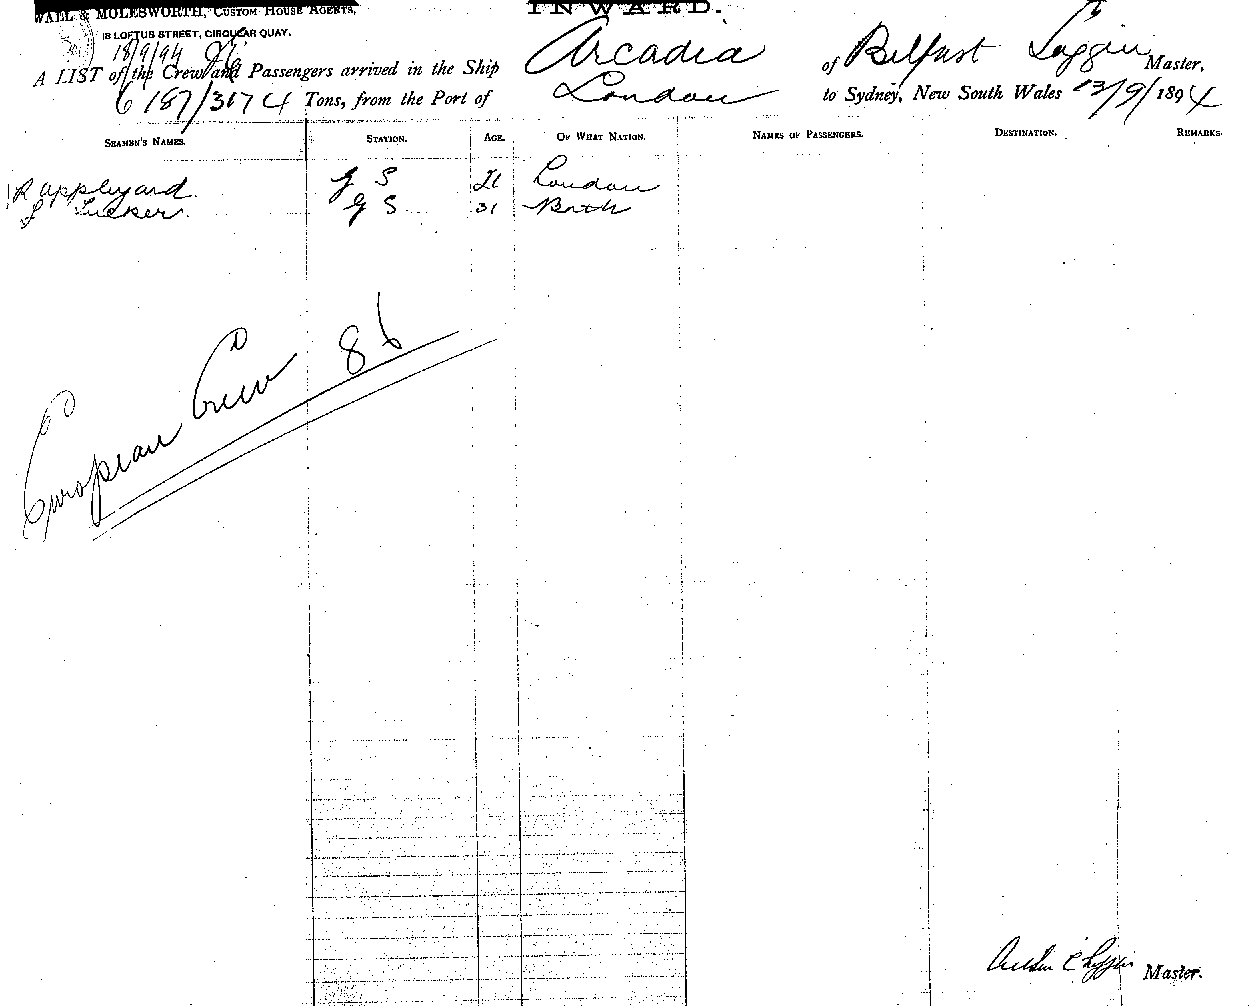 WALL & MOLESWORTH, CUSTOM HOUSE AGENTS,
INWARD.
18 LOFTUS STREET, CIRCULAR QUAY.
18/9/94
A LIST of the Crew and Passengers arrived in the Ship Arcadia of Belfast Loggin Master,
6187/3174 Tons, from the Port of London to Sydney, New South Wales 13/9/1894
SEAMEN'S NAMES. STATION. AGE. OF WHAT NATION. NAMES OF PASSENGERS. DESTINATION. REMARKS.
R Appleyard G S 21 London
J Tucker G S 31 Bath
European Crew 86
Master.